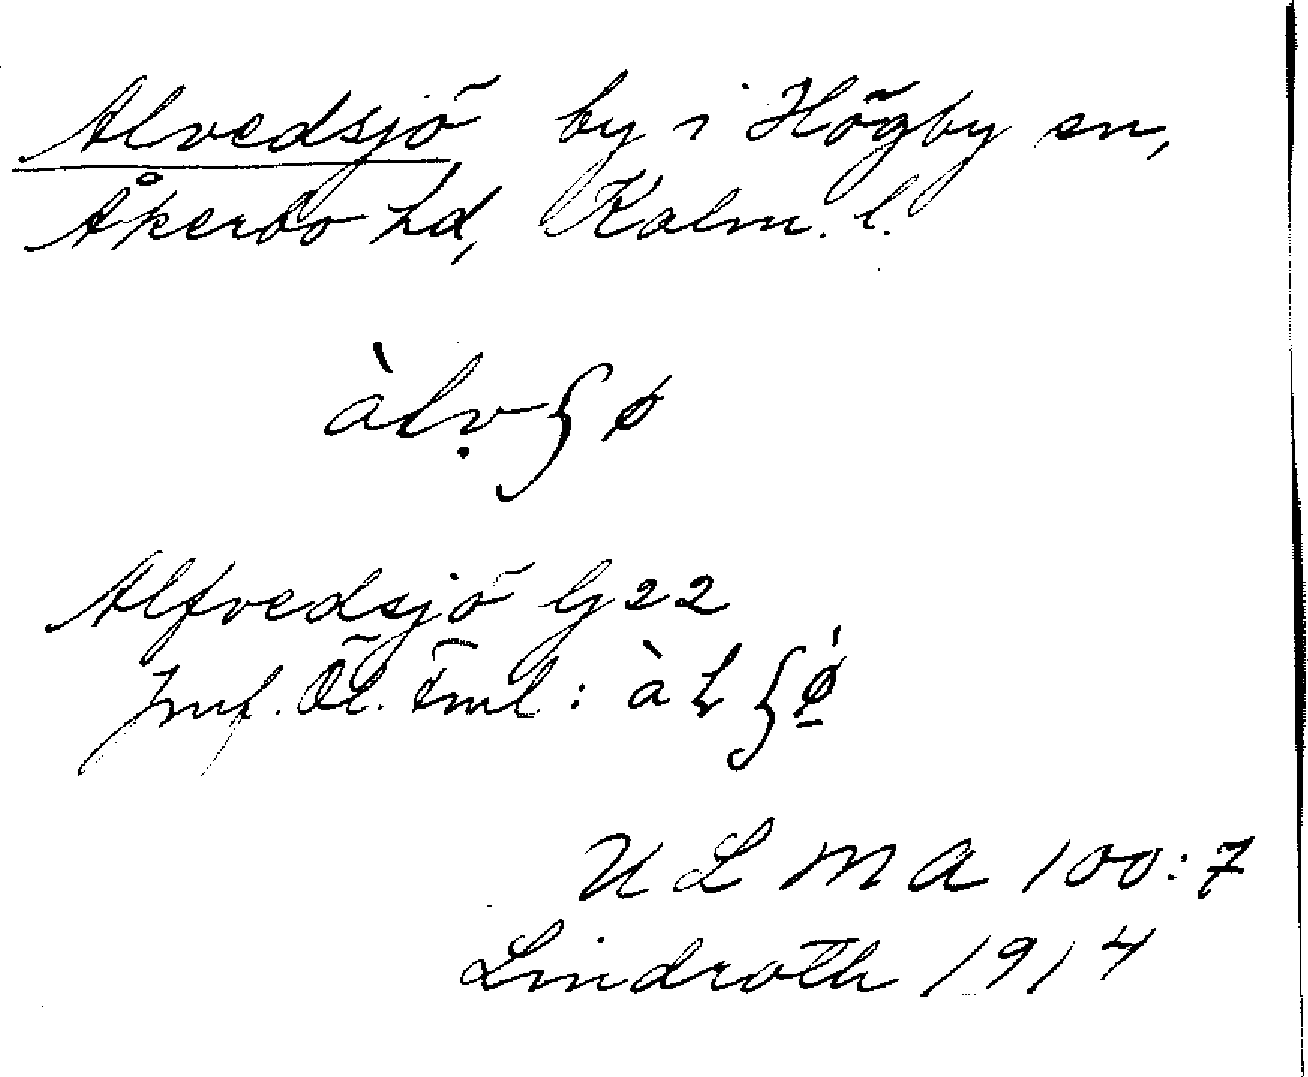 Alvedsjö by i Högby sn,
Åkerbo hd, Kalm. l.
àlṿʃø
Alfvedsjö G 22
Jmf. Öl. Fml:
U L M A 100:7
Lindroth 1914